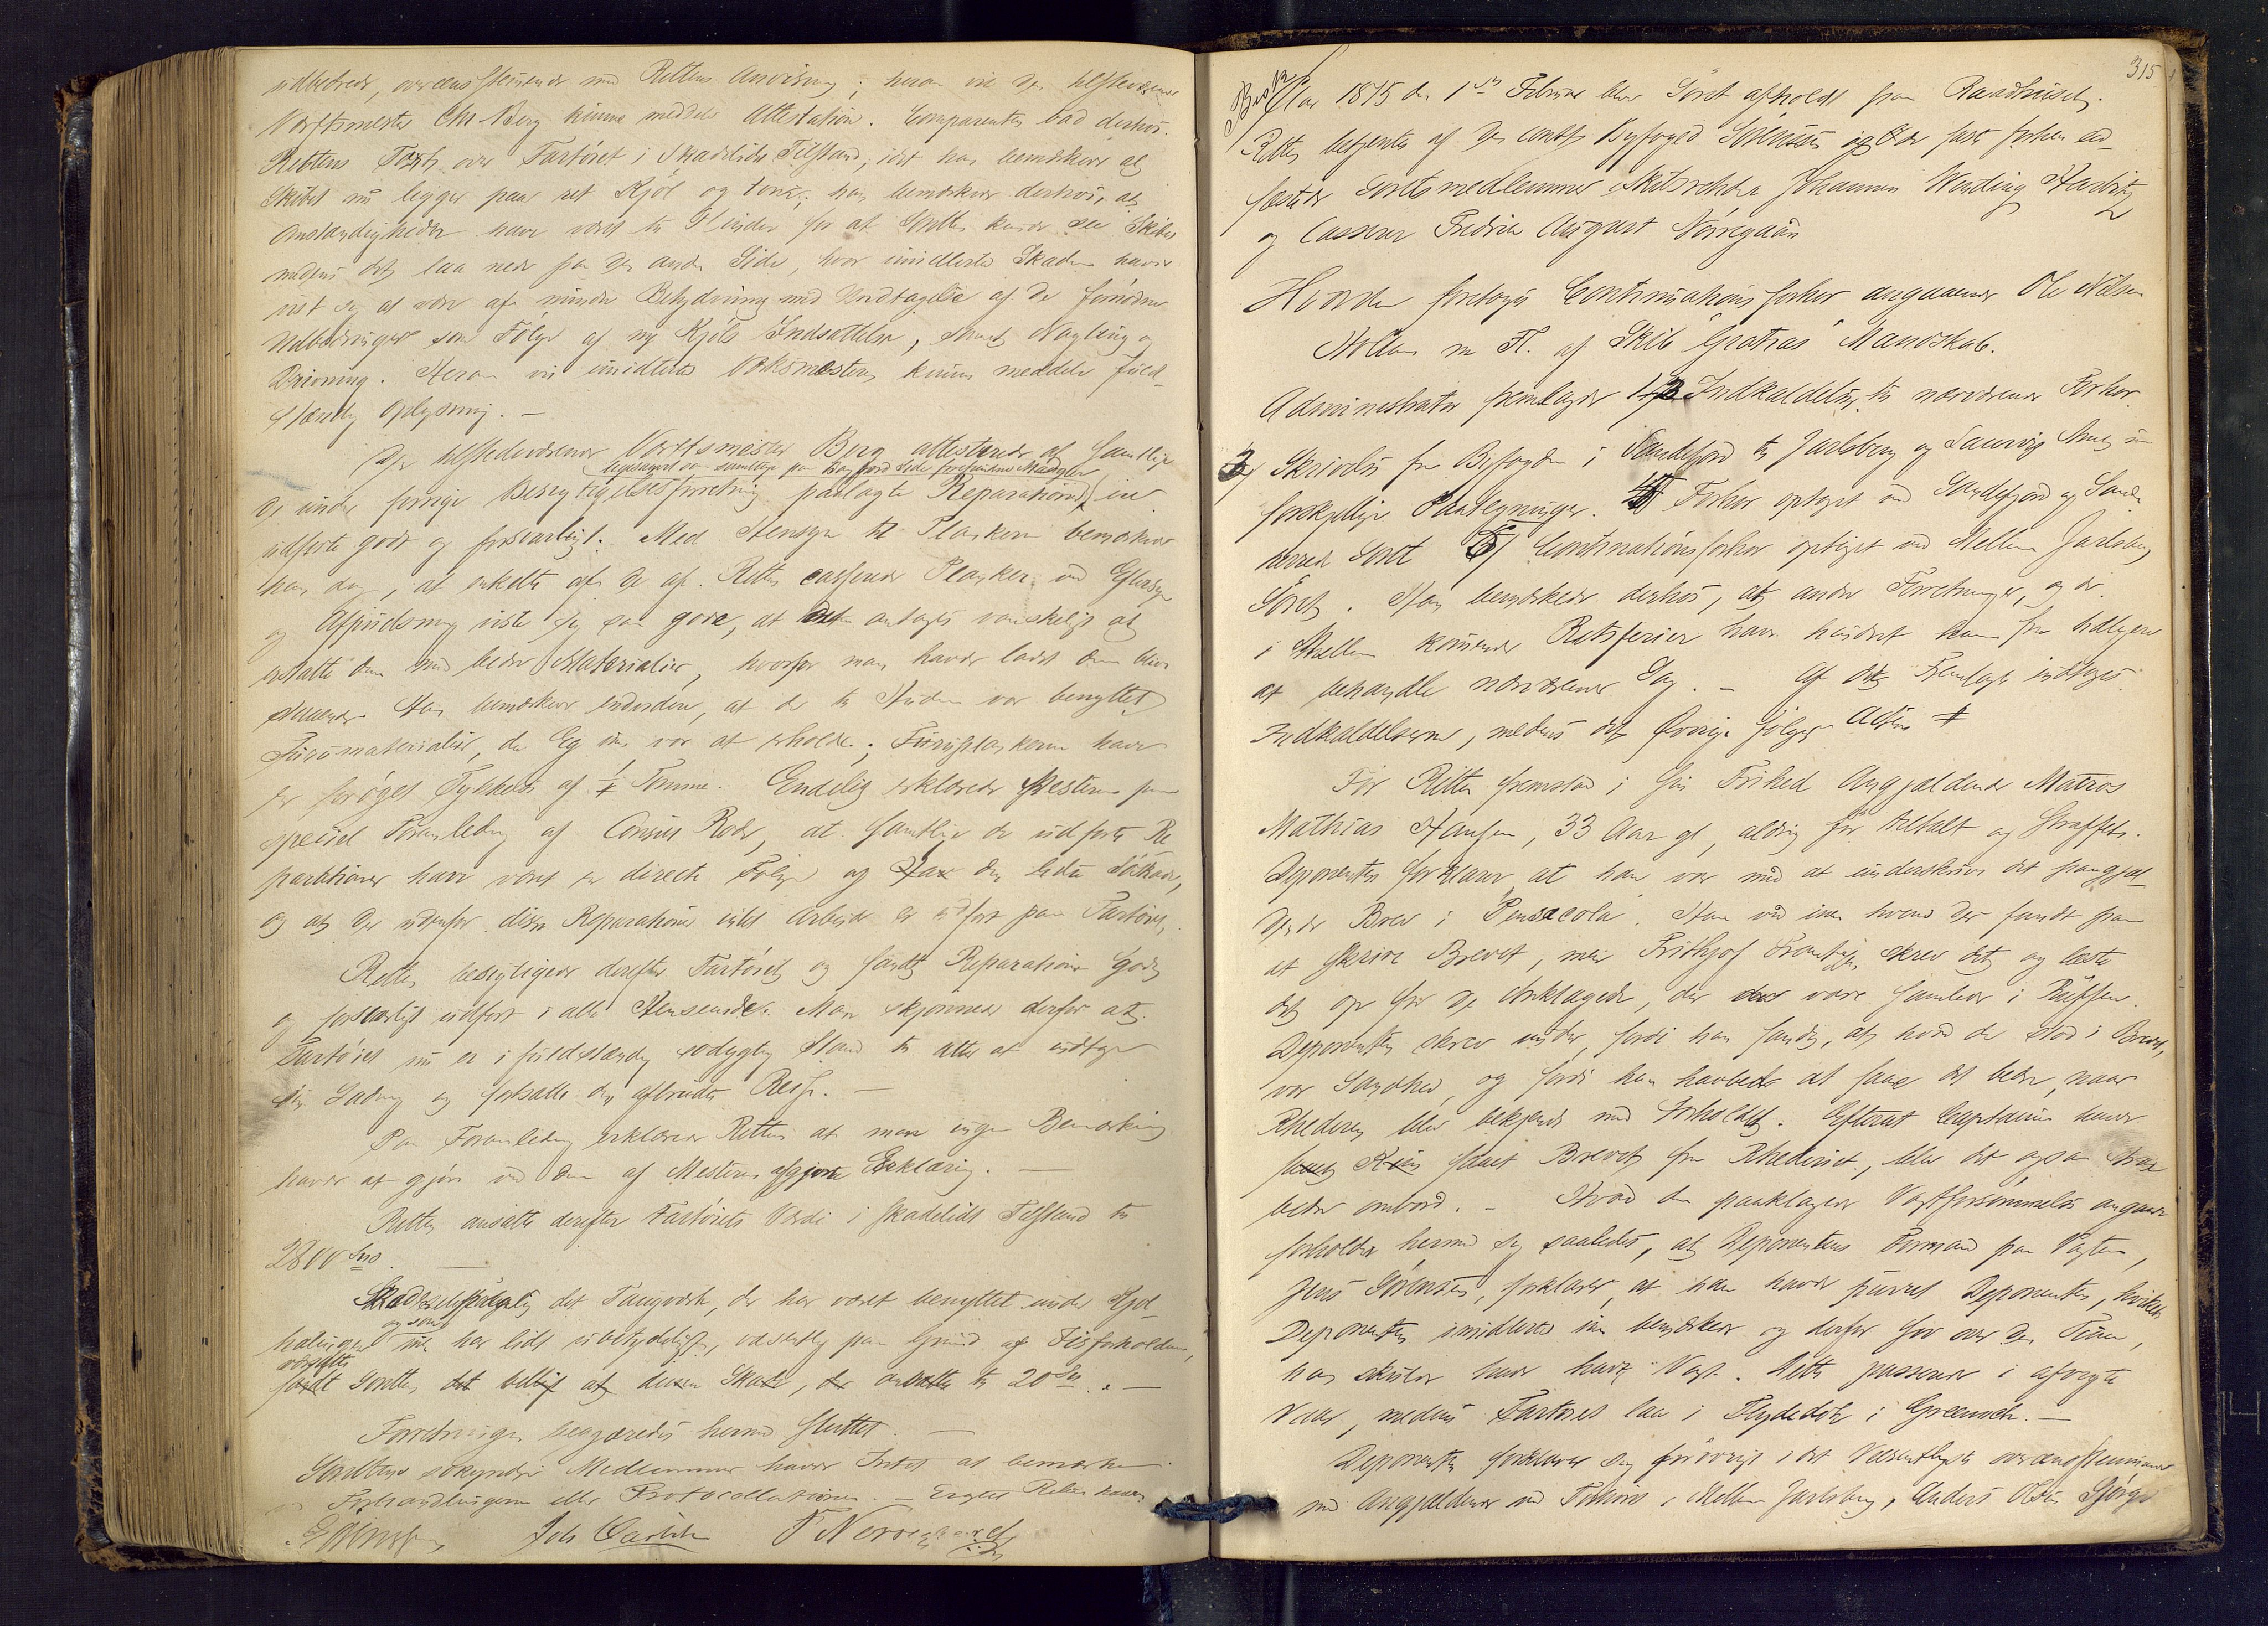 udbedrede, overensstemmende med Rettens Anvisning; herom vil den tilstedeværende
Værftsmester Chr Berg kunne meddele Attestation. Comparenten bad derhos
Rettens Taxt over Fartøiet i skadelidte Tilstand, idet han bemærkede at
Skibet nu ligger paa ret Kjøl og tomt; han bemærkede derhos, at
Omstændigheder have været til Hinder for at Retten kunde see Skibet
medens det laa nede paa den anden Side, hvor imidlertid Skaden havde
vist sig at være af mindre Betydning med Undtagelse af de fornødne
Udbedringer som Følge af ny Kjøls Indsættelse, samt Nagling og
Drivning. Herom vil imidlertid Værksmesteren kunne meddele fuld-
stændig Oplysning. —
Den tilstedeværende Værftsmester Berg attesterede at samtlige
ligesaavel som samtlige paa Bagbord Side forefundne Mangler
de under forrige Besigtigelsesforretning paalagte Reparationer ere
udførte godt og forsvarligt. Med Hensyn til Plankerne bemærkede
han dog, at enkelte af de af Retten casserede Planker ved Eftersyn
og Afpudsning viste sig saa gode, at det antages vanskeligt at
erstatte dem med bedre Materialier, hvorfor man havde ladet dem blive
siddende. Han bemærkede endvidere, at der til Huden var benyttet
Furumaterialier, da Eg ikke var at erholde; Furuplankerne have
en forøget Tykkelse af ¼ Tomme. Endelig erklærede Mesteren paa
speciel Foranledning af Consul Rode, at samtlige de udførte Re
parationer have været en directe Følge af den lidte Søskade,
og at der udenfor disse Reparationer intet Arbeide er udført paa Fartøiet.
Retten besigtigede derefter Fartøiet og fandt Reparationen godt
og forsvarligt udført i alle Henseender. Man skjønnede derfor at
Fartøiet nu er i fuldstændig sødygtig Stand til atter at indtage
sin Ladning og fortsætte den afbrudte Reise. —
Paa Foranledning erklærede Retten at man ingen Bemærkning
havde at gjøre ved den af Mesteren afgivne Erklæring. —
Retten ansatte derefter Fartøiets Værdi i skadelidt Tilstand til
2800 Spd. —
det Taugværk, der har været benyttet under Kjøl
og som
halingen har lidt ubetydeligt, væsentlig paa Grund af Iisforholdene,
værdsatte
Retten af denne Skade, til 20 Spd. —
Forretningen begjæredes hermed sluttet. —
Rettens søkyndige Medlemmer havde Intet at bemærke
ved Forhandlingerne eller Protocollationen. — Retten hævet
Joh Carlsen F Nørregaard
315
Aar 1875 den 1ste Februar blev Søret afholdt paa Raadhuset.
Retten betjentes af den const. Byfoged Sørensen og de før forhen ed-
fæstede Søretsmedlemmer Skibsrheder Johannes Wending Harbitz
og Casserer Fredrik August Nørregaard
Hvorda foretoges Continuationsforhør angaaende Ole Nilsen
Holtan m. Fl. af Skib "Gratias" Mandskab.
Administrator fremlagde 1/2 Indkaldelser til nærværende Forhør.
3/ Skrivelse fra Byfogden i Sandefjord til Jarlsberg og Laurvigs Amt med
forskjellige Paategninger. 4/ Forhør optaget ved Sandefjord og Sande-
herred Søret 5/ Continuationsforhør optaget ved Mellem Jarlsberg
Søret. Han bemærkede derhos, at andre Forretninger, og de
i Mellem kommende Retsferier have hindret ham fra tidligere
at behandle nærværende Sag. — Af det Fremlagte indtages
Indkaldelserne, medens det Øvrige følger Acten #
For Retten fremstod i sin Frihed Angjældende Matros
Mathias Hansen, 33 Aar gl, aldrig før tiltalt og straffet.
Deponenten forklarer at han var med at underskrive det paagjæl-
dende Brev i "Pensacola". Han ved ikke hvem der fandt paa
at skrive Brevet, men Frithjof Frantzen skrev det og læste
det op for de Anklagede, der vare samlede i Ruffen.
Deponenten skrev under, fordi han fandt, at hvad der stod i Brevet,
var Sandhed, og fordi han haabede at faae det bedre, naar
Rhederen blev bekjendt med Forholdet. Efterat Capteinen havde
faaet Brevet fra Rhederiet, blev det ogsaa strax
bedre ombord. — Hvad den paaklagede Vagtforsømmelse angaar
forholder hermed sig saaledes, at Deponentens Formand paa Vagten,
Jens Sørensen, forklarer, at han havde purret Deponenten, hvilket
Deponenten imidlertid ikke bemærkede og derfor sov over den Time,
han skulde have havt Vagt. Dette passerede i afvigte
Vaar, medens Fartøiet laa i Flydedok i Greenock. —
Deponenten forklarer sig forøvrigt i det Væsentligste overensstemmende
med Angjældende ved Forhøret i Mellem Jarlsberg, Anders Olsen